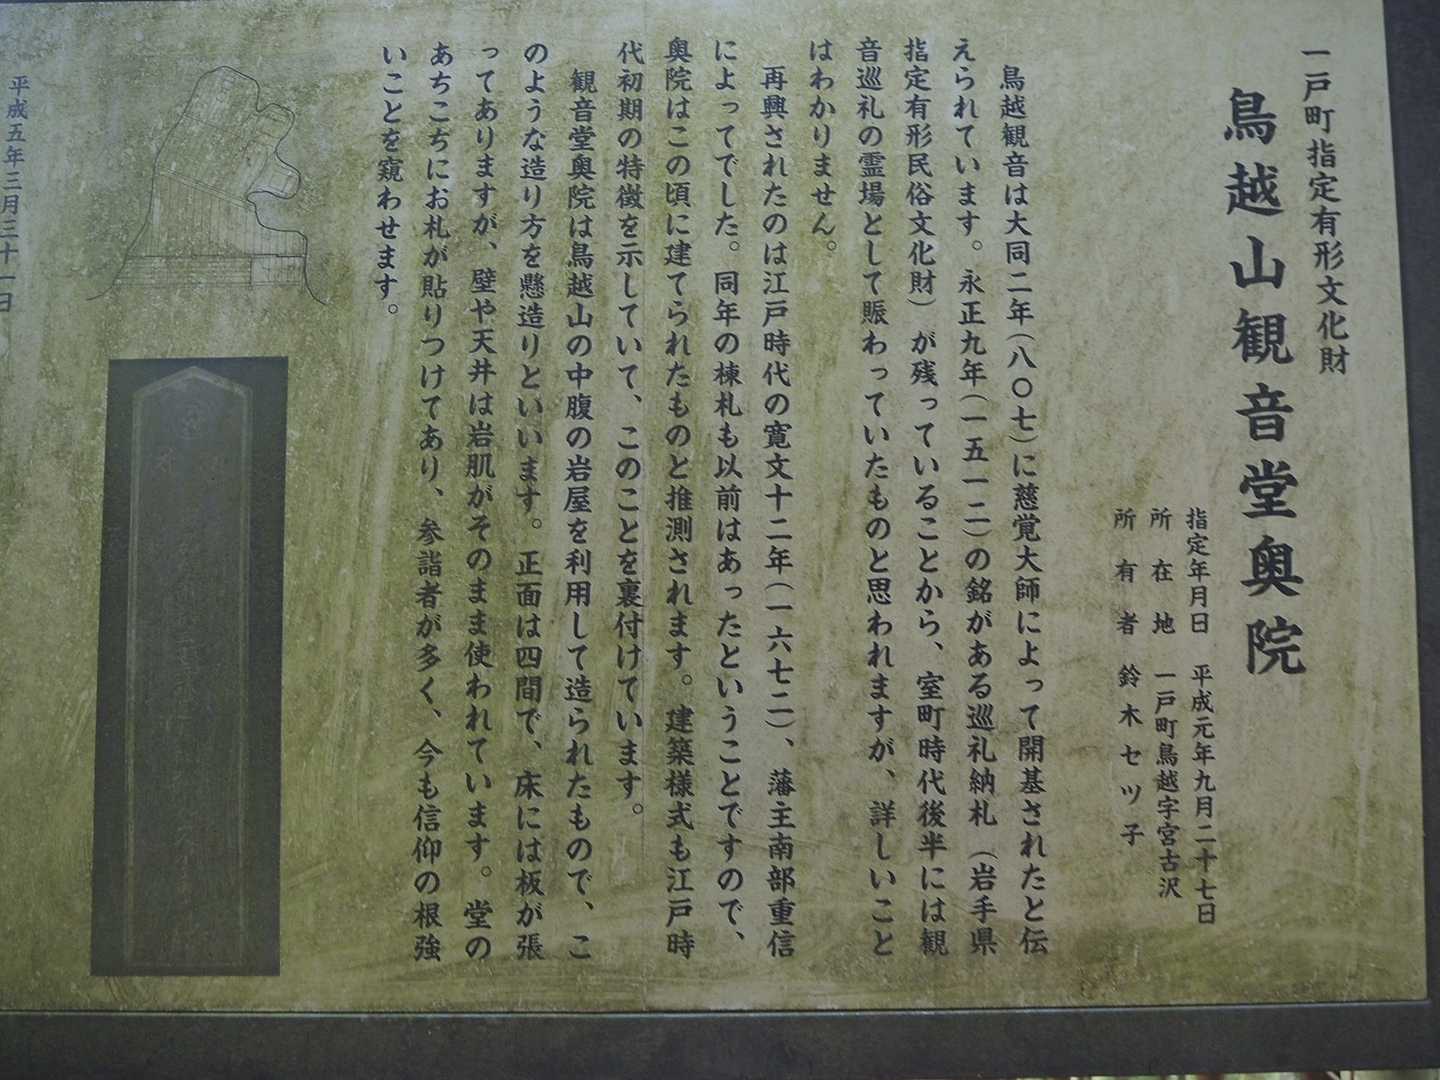 一戸町指定有形文化財
鳥越山観音堂奥院
指定年月日 平成元年九月二十七日
所在地 一戸町鳥越字宮古沢
所有者 鈴木セツ子
鳥越観音は大同二年(八〇七)に慈覚大師によって開基されたと伝
えられています。永正九年(一五一二)の銘がある巡礼納札(岩手県
指定有形民俗文化財)が残っていることから、室町時代後半には観
音巡礼の霊場として賑わっていたものと思われますが、詳しいこと
はわかりません。
再興されたのは江戸時代の寛文十二年(一六七二)、藩主南部重信
によってでした。同年の棟札も以前はあったということですので、
奥院はこの頃に建てられたものと推測されます。建築様式も江戸時
代初期の特徴を示していて、このことを裏付けています。
観音堂奥院は鳥越山の中腹の岩屋を利用して造られたもので、こ
のような造り方を懸造りといいます。正面は四間で、床には板が張
ってありますが、壁や天井は岩肌がそのまま使われています。堂の
あちこちにお札が貼りつけてあり、参詣者が多く、今も信仰の根強
いことを窺わせます。
平成五年三月三十一日